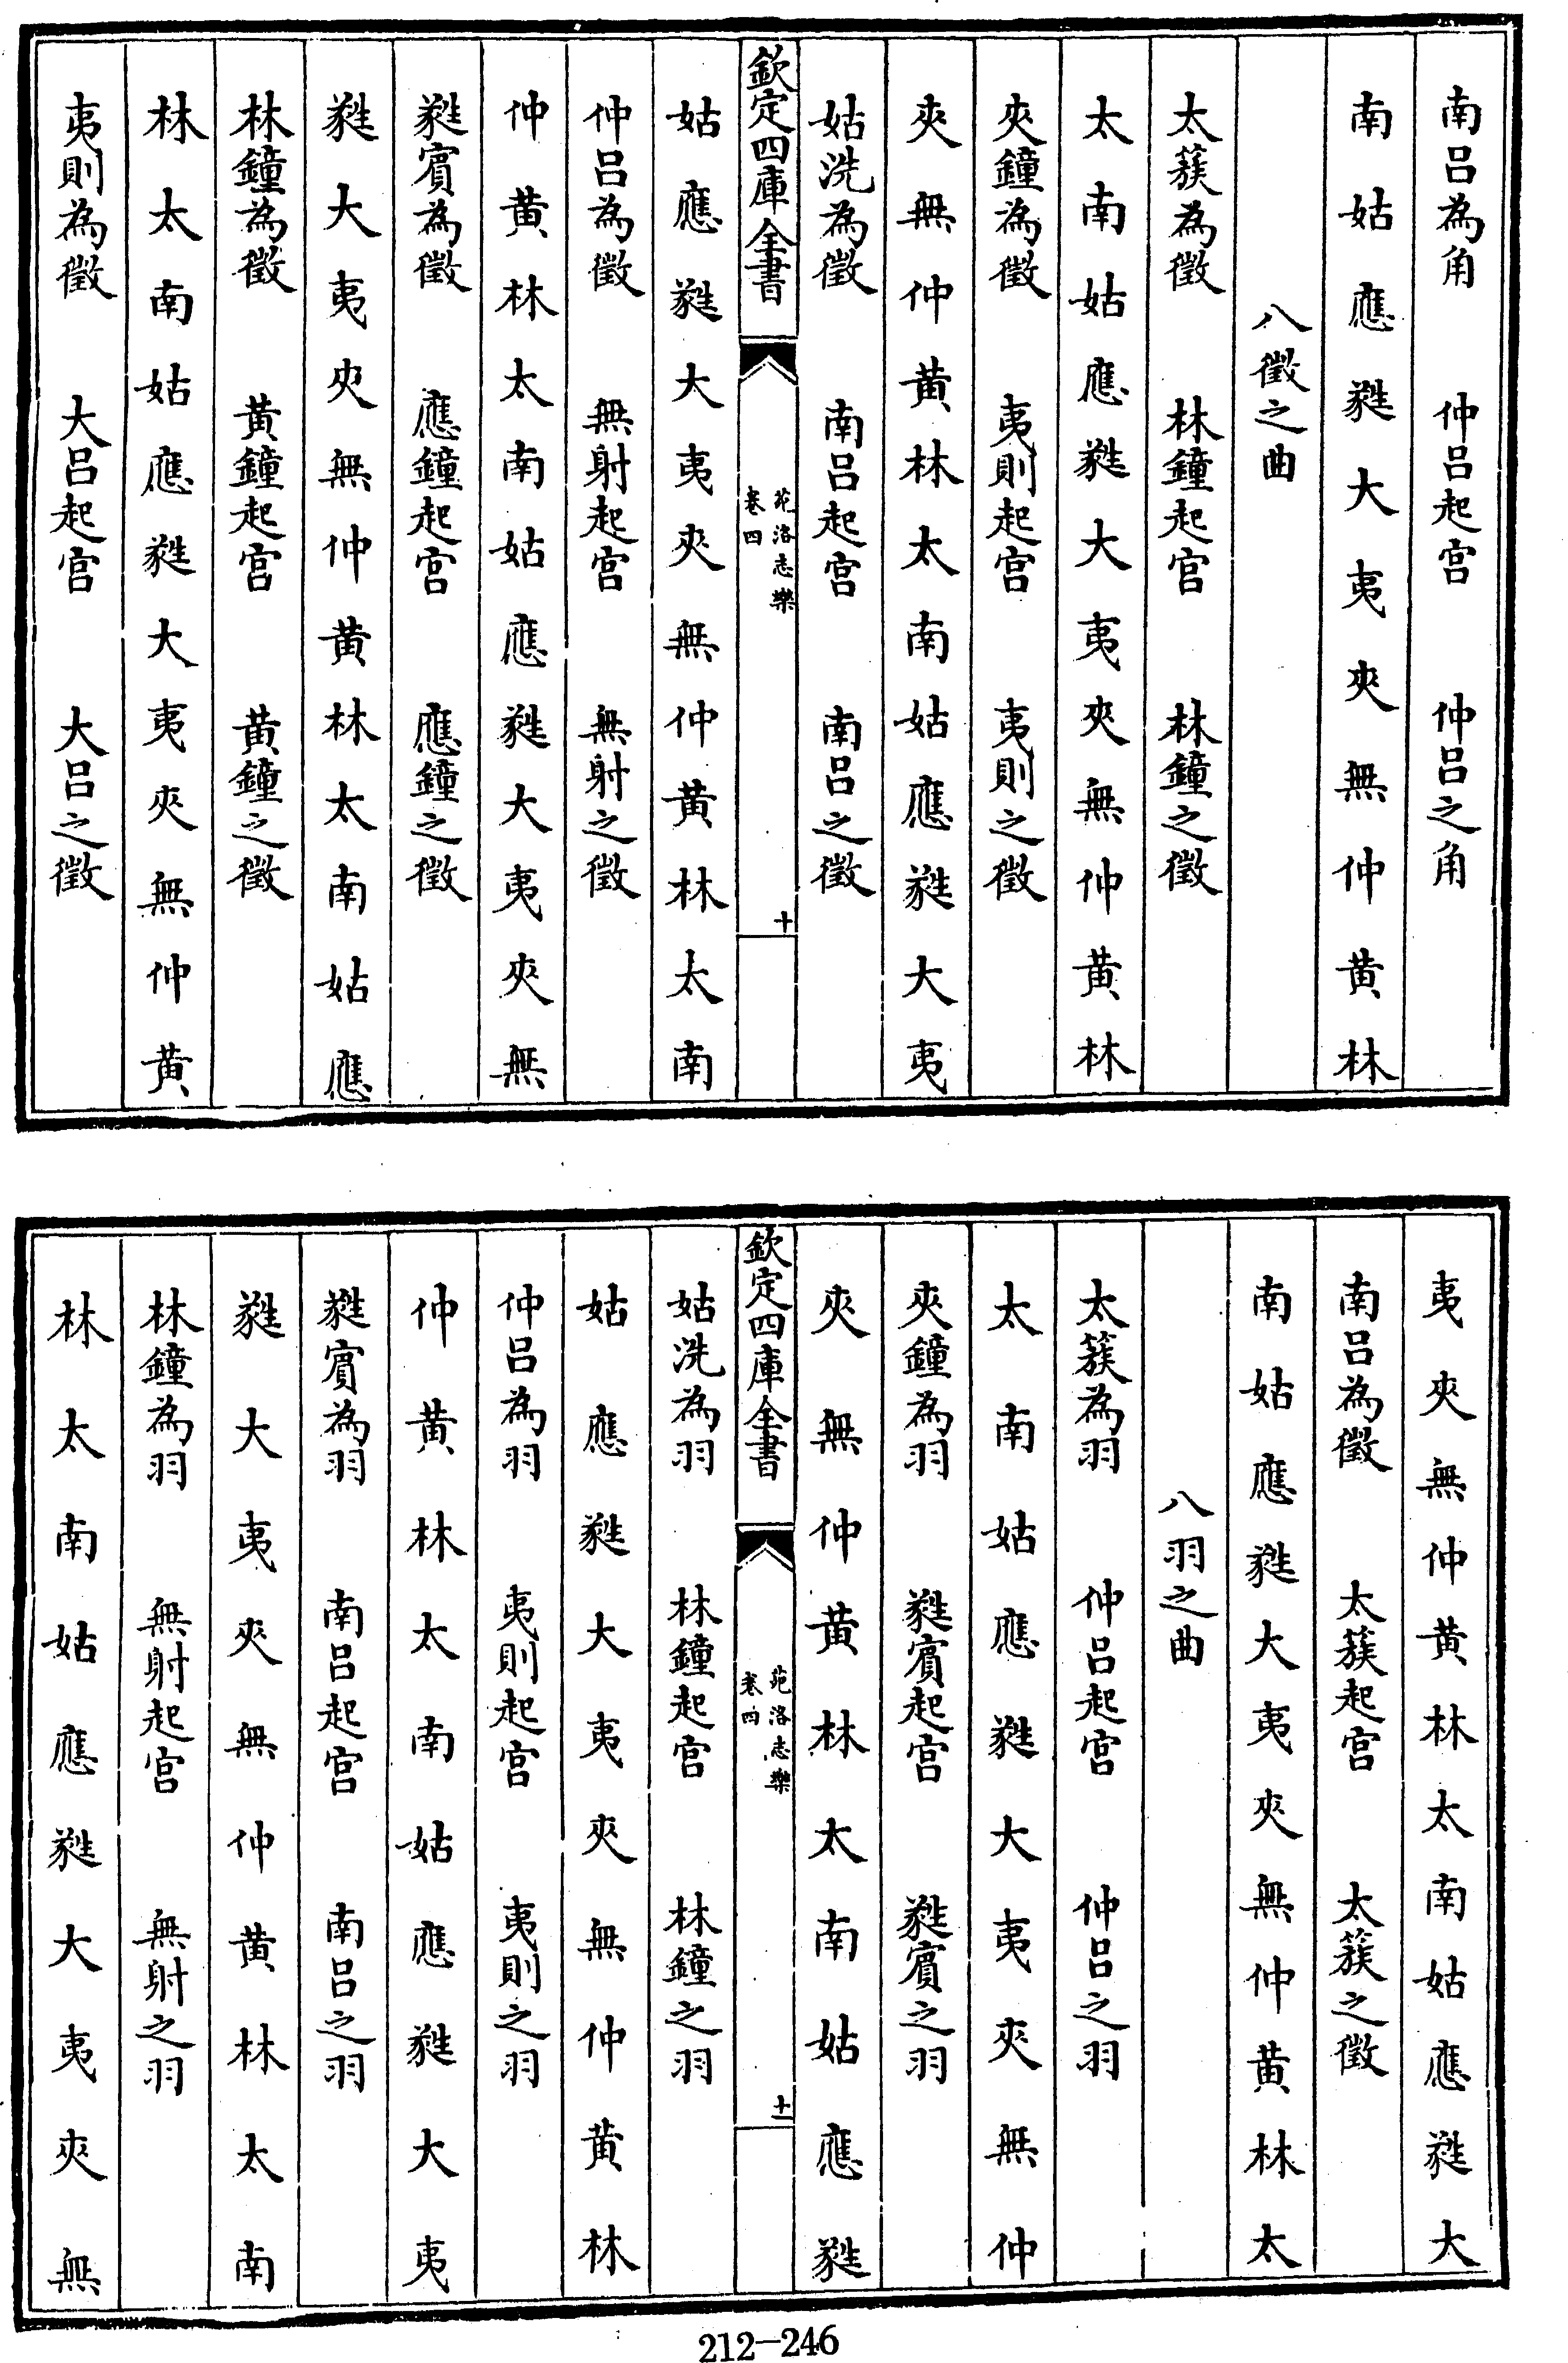 南呂為角　仲呂起宮　仲呂之角
南姑應甤大夷夾無仲黄林
八徵之曲
太簇為徵　林鐘起宮　林鐘之徵
太南姑應甤大夷夾無仲黄林
夾鐘為徵　夷則起宮　夷則之徵
夾無仲黄林太南姑應甤大夷
姑洗為徵　南呂起宮　南呂之徵
欽定四庫全書
苑洛志樂
卷四
十
姑應甤大夷夾無仲黄林太南
仲呂為徵　無射起宮　無射之徵
仲黄林太南姑應甤大夷夾無
甤賓為徵　應鐘起宮　應鐘之徵
甤大夷夾無仲黄林太南姑應
林鐘為徵　黄鐘起宮　黄鐘之徵
林太南姑應甤大夷夾無仲黄
夷則為徵　大呂起宮　大呂之徵
夷夾無仲黄林太南姑應甤大
南呂為徵　太簇起宮　太簇之徵
南姑應甤大夷夾無仲黄林太
八羽之曲
太簇為羽　仲呂起宮　仲呂之羽
太南姑應甤大夷夾無仲
夾鐘為羽　甤賓起宮　甤賓之羽
夾無仲黄林太南姑應甤
欽定四庫全書
苑洛志樂
卷四
十一
姑洗為羽　林鐘起宮　林鐘之羽
姑應甤大夷夾無仲黄林
仲呂為羽　夷則起宮　夷則之羽
仲黄林太南姑應甤大夷
甤賓為羽　南呂起宮　南呂之羽
甤大夷夾無仲黄林太南
林鐘為羽　無射起宮　無射之羽
林太南姑應甤大夷夾無
212-246